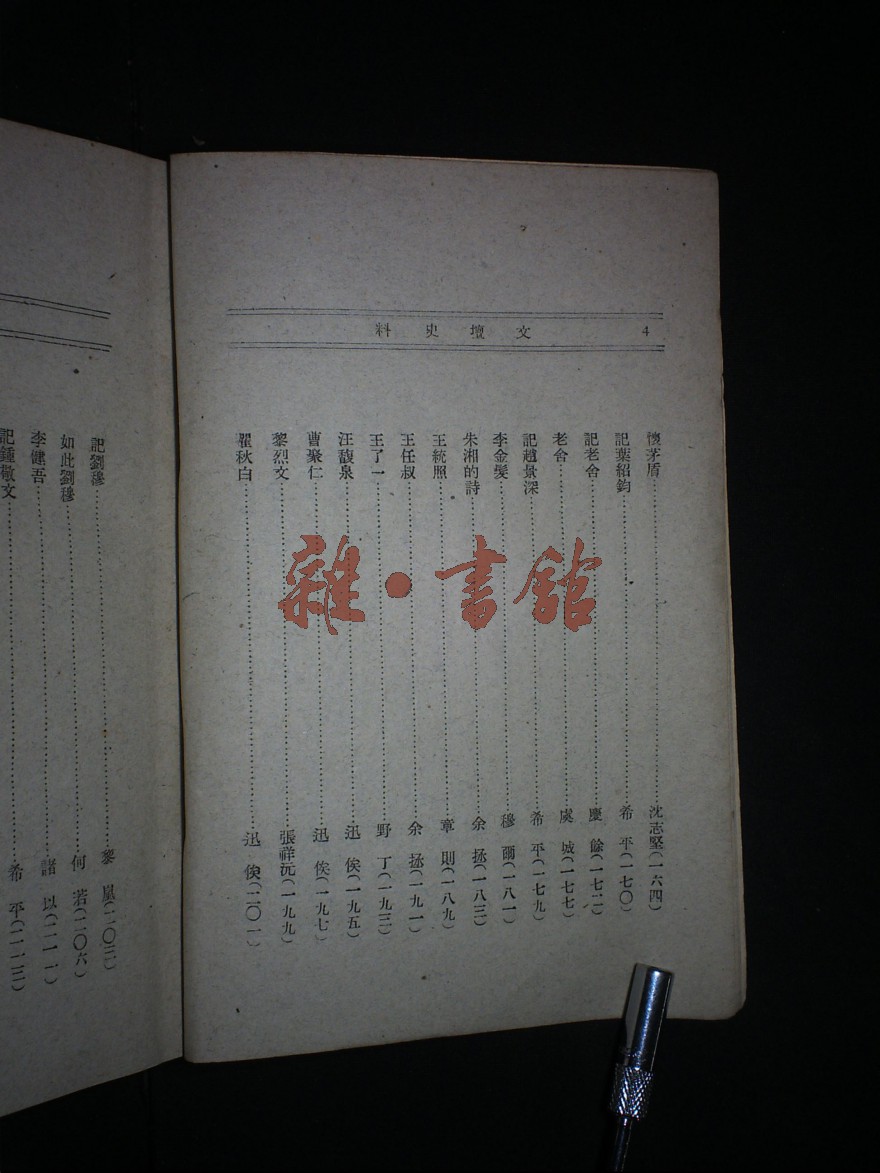 4 文壇史料
懷茅盾……沈志堅(一六四)
記葉紹鈞……希平(一七〇)
記老舍……慶餘(一七二)
老舍……虞城(一七七)
記趙景深……希平(一七九)
李金髮……穆爾(一八一)
朱湘的詩……余拯(一八三)
王統照……章則(一八九)
王任叔……余拯(一九一)
王了一……野丁(一九三)
汪馥泉……迅俟(一九五)
曹聚仁……迅俟(一九七)
黎烈文……張祥沅(一九九)
瞿秋白……迅俟(二〇一)
記劉穆……黎嵐(二〇三)
如此劉穆……何若(二〇六)
李健吾……諸以(二一一)
記鍾敬文……希平(二一三)
雜·書館